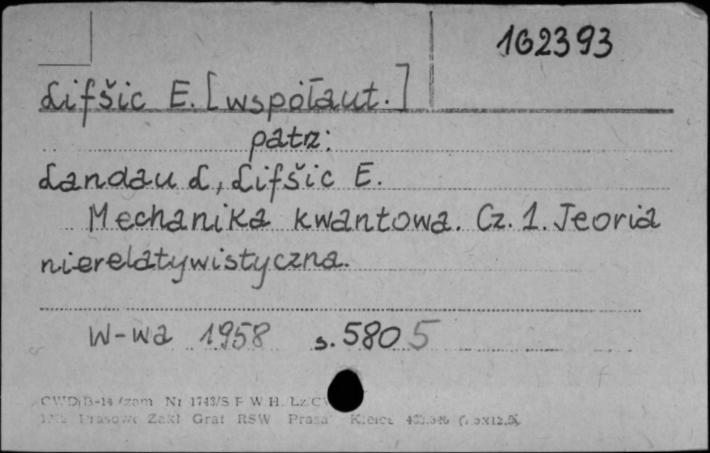 162393
Lifšic E. [współaut.]
patrz:
Landau L, Lifšic E.
Mechanika kwantowa. Cz. 1. Teoria
nierelatywistyczna.
W-wa 1958 s. 580 5
CWD/B-14 /zam. Nr 1743/S F. W. H.
Prasowe Zakł Graf RSW "Prasa" Kielce